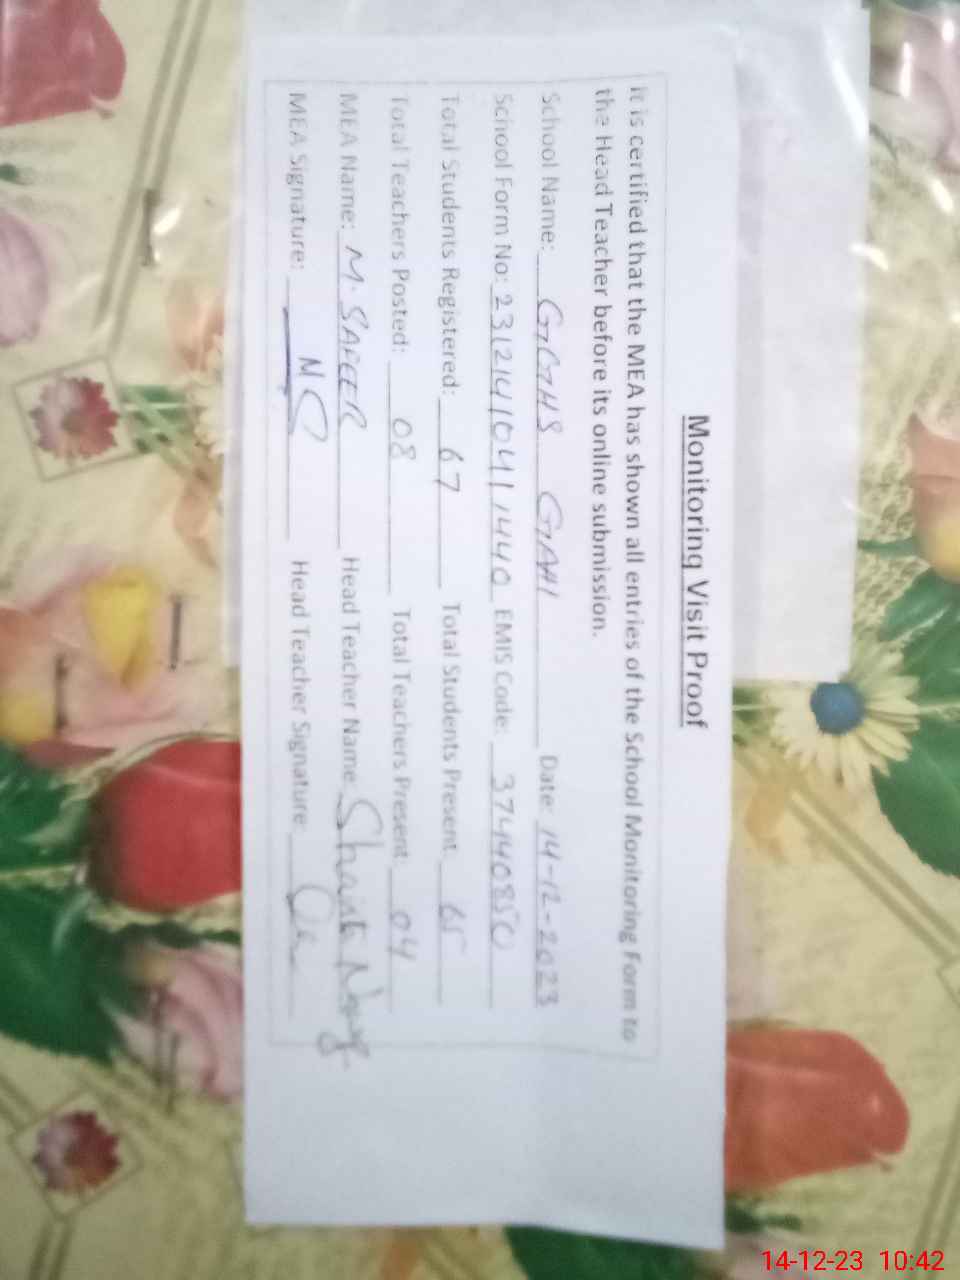 Monitoring Visit Proof
It is certified that the MEA has shown all entries of the School Monitoring Form to
the Head Teacher before its online submission.
School Name: GGHS GAHI Date: 14-12-2023
School Form No: 23121410411440 EMIS Code: 37440850
Total Students Registered: 67 Total Students Present 65
Total Teachers Posted: 08 Total Teachers Present 04
MEA Name: M. SAFEER Head Teacher Name
MEA Signature: Head Teacher Signature:
14-12-23 10:42